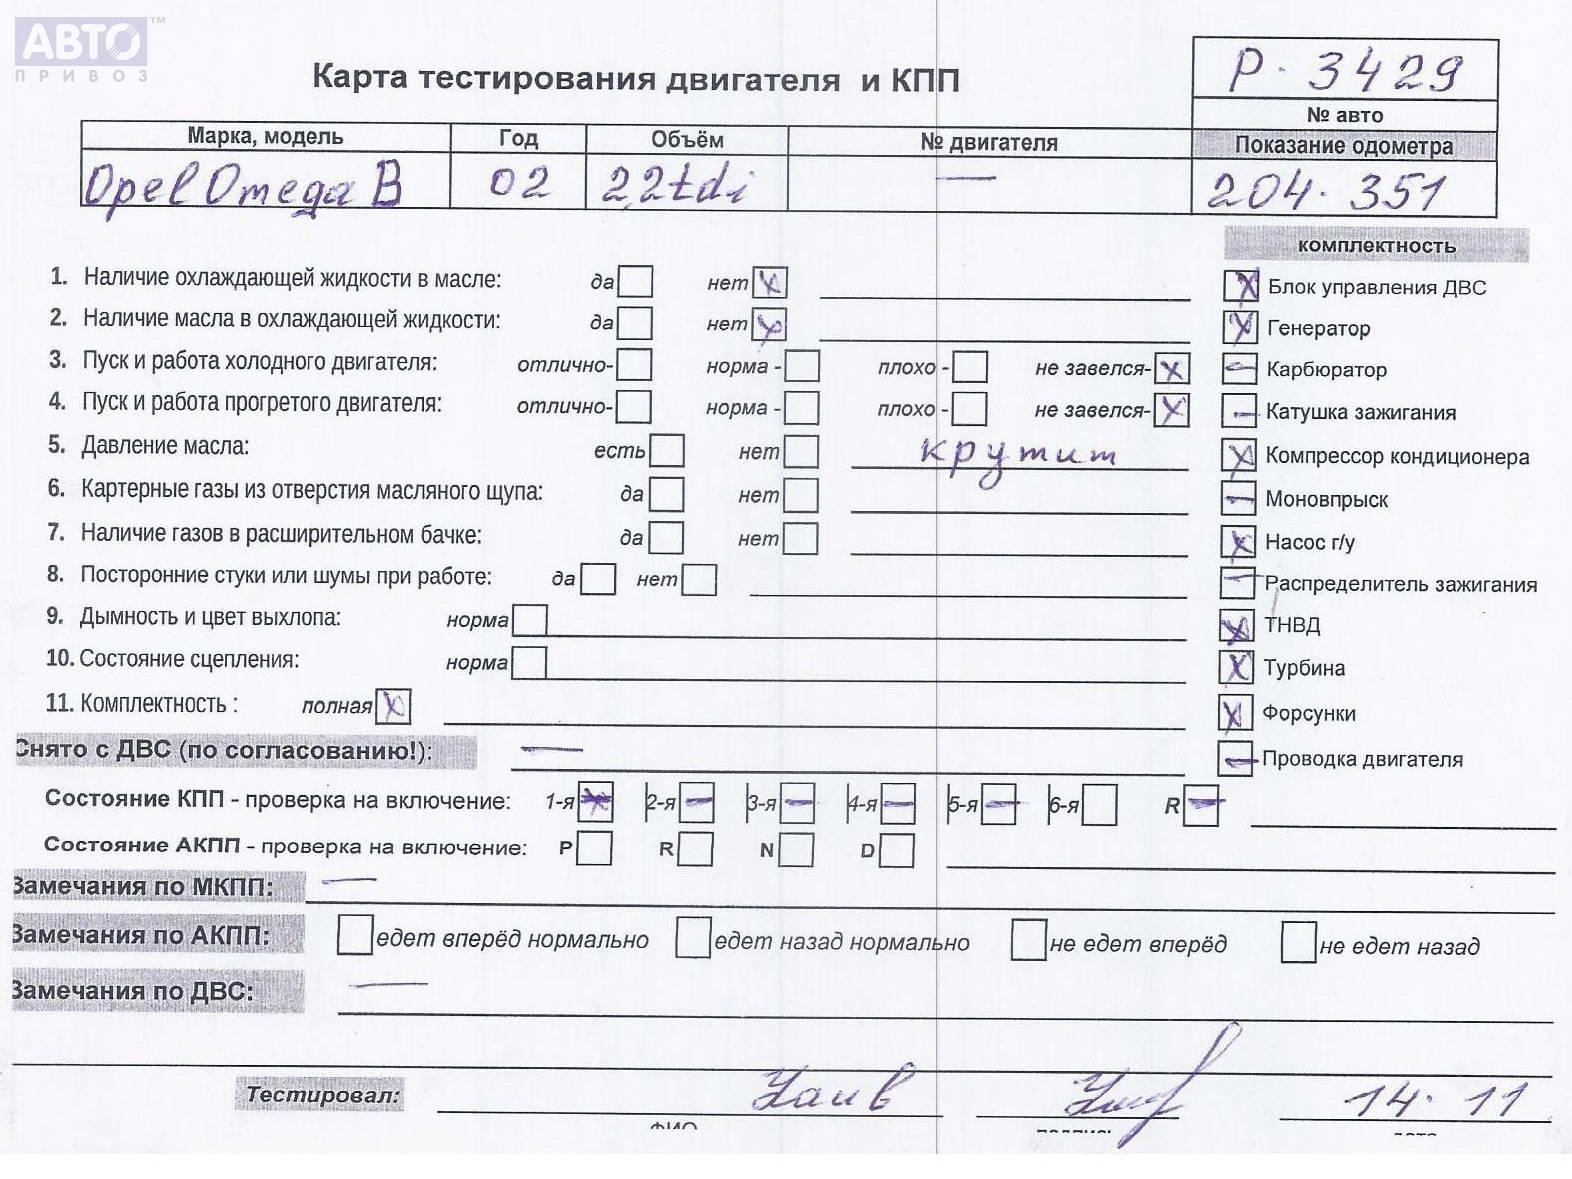 АВТО™
ПРИВОЗ
Карта тестирования двигателя и КПП
Р-3429
№ авто
Марка, модель Год Объём № двигателя Показание одометра
Opel Omega B 02 2,2tdi — 204.351
комплектность
1. Наличие охлаждающей жидкости в масле: да нет x
2. Наличие масла в охлаждающей жидкости: да нет x
3. Пуск и работа холодного двигателя: отлично- норма - плохо - не завелся- x
4. Пуск и работа прогретого двигателя: отлично- норма - плохо - не завелся- x
5. Давление масла: есть нет крутит
6. Картерные газы из отверстия масляного щупа: да нет
7. Наличие газов в расширительном бачке: да нет
8. Посторонние стуки или шумы при работе: да нет
9. Дымность и цвет выхлопа: норма
10. Состояние сцепления: норма
11. Комплектность : полная x
x Блок управления ДВС
x Генератор
— Карбюратор
— Катушка зажигания
x Компрессор кондиционера
— Моновпрыск
x Насос г/у
— Распределитель зажигания
x ТНВД
x Турбина
x Форсунки
— Проводка двигателя
Снято с ДВС (по согласованию!): —
Состояние КПП - проверка на включение: 1-я x 2-я — 3-я — 4-я — 5-я — 6-я R —
Состояние АКПП - проверка на включение: P R N D
Замечания по МКПП: —
Замечания по АКПП: едет вперёд нормально едет назад нормально не едет вперёд не едет назад
Замечания по ДВС: —
Тестировал: 14.11
ФИО подпись дата